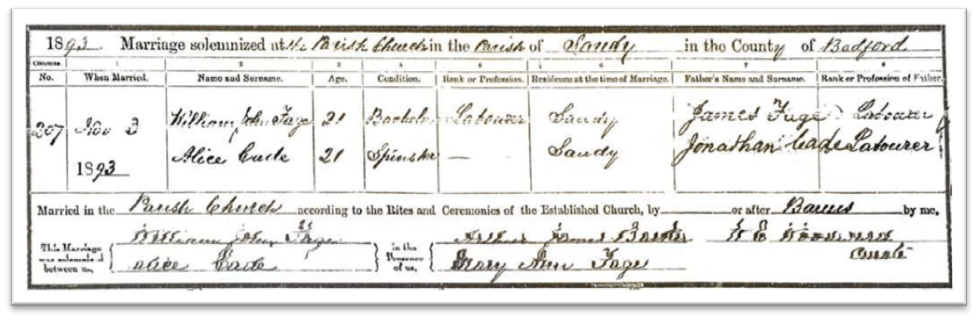 1893. Marriage solemnized at the Parish Church in the Parish of Sandy in the County of Bedford
Columns 1 2 3 4 5 6 7 8
No. When Married. Name and Surname. Age. Condition. Rank or Profession. Residence at the time of Marriage. Father's Name and Surname. Rank or Profession of Father.
207 Nov 3 William John Fage 21 Bachelor Labourer Sandy James Fage Labourer
1893 Alice Cade 21 Spinster — Sandy Jonathan Cade Labourer
Married in the Parish Church according to the Rites and Ceremonies of the Established Church, by or after Banns by me,
This Marriage was solemnized between us, William John Fage in the Presence of us, Arthur James
Alice Cade Mary Ann Fage Curate